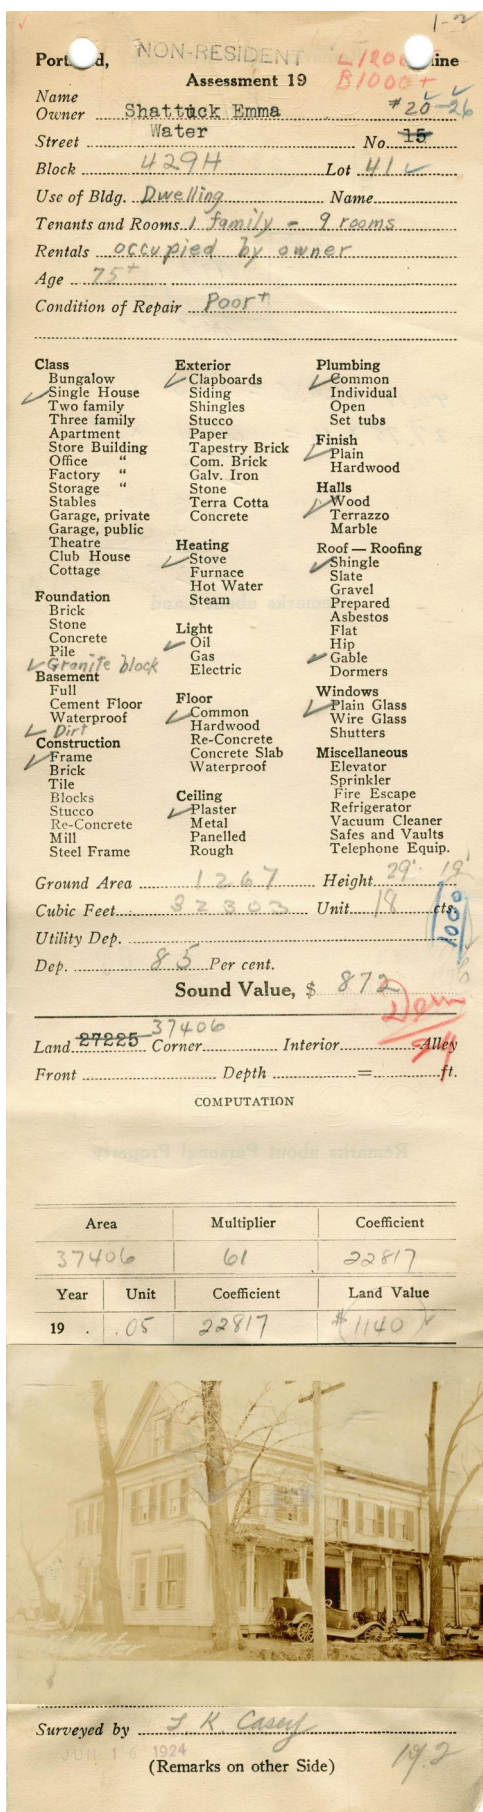 1-2
NON-RESIDENT
Portland, Maine
L1200
B1000+
Assessment 19
Name
Owner Shattuck Emma #20-26
Street Water No. 15
Block 429H Lot 41
Use of Bldg. Dwelling Name
Tenants and Rooms 1 family - 9 rooms
Rentals occupied by owner
Age 75+
Condition of Repair Poor+
Class
Bungalow
Single House
Two family
Three family
Apartment
Store Building
Office "
Factory "
Storage "
Stables
Garage, private
Garage, public
Theatre
Club House
Cottage
Foundation
Brick
Stone
Concrete
Pile
Granite block
Basement
Full
Cement Floor
Waterproof
Dirt
Construction
Frame
Brick
Tile
Blocks
Stucco
Re-Concrete
Mill
Steel Frame
Exterior
Clapboards
Siding
Shingles
Stucco
Paper
Tapestry Brick
Com. Brick
Galv. Iron
Stone
Terra Cotta
Concrete
Heating
Stove
Furnace
Hot Water
Steam
Light
Oil
Gas
Electric
Floor
Common
Hardwood
Re-Concrete
Concrete Slab
Waterproof
Ceiling
Plaster
Metal
Panelled
Rough
Plumbing
Common
Individual
Open
Set tubs
Finish
Plain
Hardwood
Halls
Wood
Terrazzo
Marble
Roof — Roofing
Shingle
Slate
Gravel
Prepared
Asbestos
Flat
Hip
Gable
Dormers
Windows
Plain Glass
Wire Glass
Shutters
Miscellaneous
Elevator
Sprinkler
Fire Escape
Refrigerator
Vacuum Cleaner
Safes and Vaults
Telephone Equip.
Ground Area 1267 Height 29' 19'
Cubic Feet 32303 Unit 18 cts.
1000
Utility Dep.
Dep. 85 Per cent.
Sound Value, $ 872
Dem
37406
Land 27225 Corner Interior Alley
Front Depth = ft.
COMPUTATION
Area Multiplier Coefficient
37406 61 22817
Year Unit Coefficient Land Value
19 . .05 22817 $(1140)
Water
Surveyed by L K Casey
JUN 16 1924
(Remarks on other Side)
192